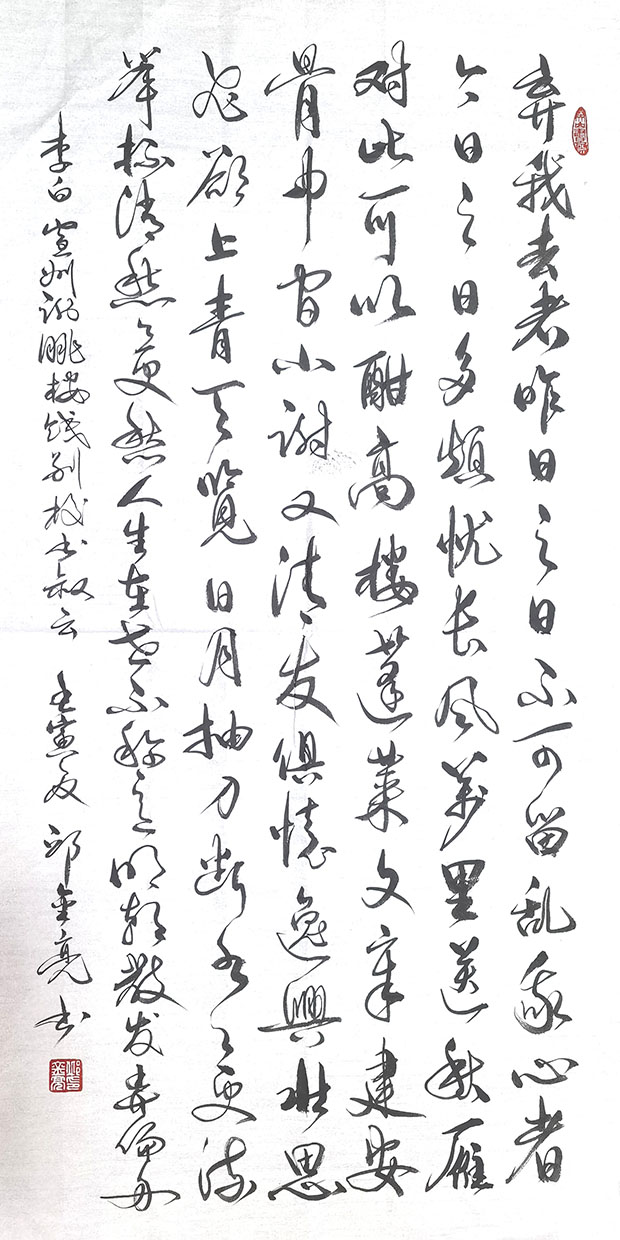 弃我去者昨日之日不可留乱我心者
今日之日多烦忧长风万里送秋雁
对此可以酣高楼蓬莱文章建安
骨中间小谢又清发俱怀逸興壮思
飞欲上青天览日月抽刀断水々更流
举杯消愁々更愁人生在世不称意明朝散发弄扁舟
李白宣州谢朓楼饯别校书叔云 壬寅夏 邱金亮书